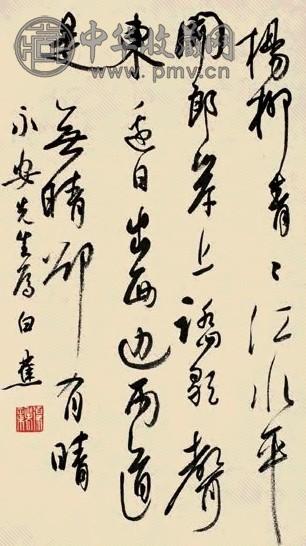 中华收藏网
www.pmv.cn
楊柳青〻江水平
聞郎岸上踏歌聲
東边日出西边雨道
是無晴卻有晴
永安先生属 白蕉